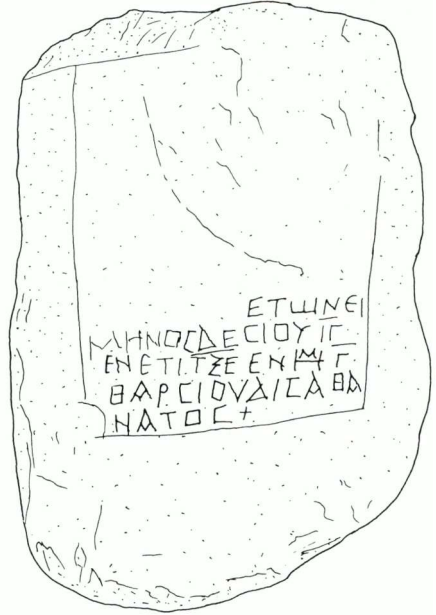 ΕΤωΝΕΙ
ΜΗΝΟϹΔΕϹΙΟΥΙΓ
ΕΝΕΤΙΤΞΕΕΝΗΜΓ
ΘΑΡϹΙΟΥΔΙϹΑΘΑ
ΝΑΤΟϹ+